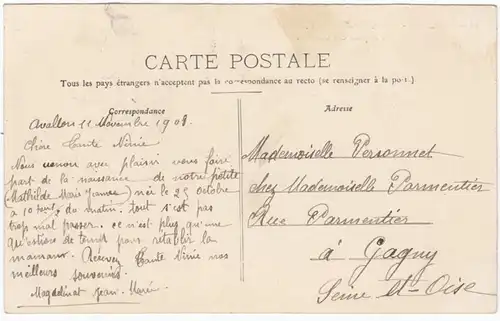 CARTE POSTALE
Tous les pays étrangers n'acceptent pas la correspondance au recto (se renseigner à la poste).
Correspondance
Adresse
Avallon 11 Novembre 1908
Chère Tante Ninie
Nous venon avec plaisir vous faire
part de la naissance de notre petite
(Mathilde Marie Jeanne) née le 25 octobre
à 10 heures du matin. tout s'est pas
trop mal passer. ce n'est plus qu'une
question de temps pour rétablir la
maman. Recevez Tante Ninie nos
meilleurs souvenirs.
Magdelinat Jean-Marie
Mademoiselle Personnet
chez Mademoiselle Parmentier
Rue Parmentier
à Gagny
Seine et-Oise